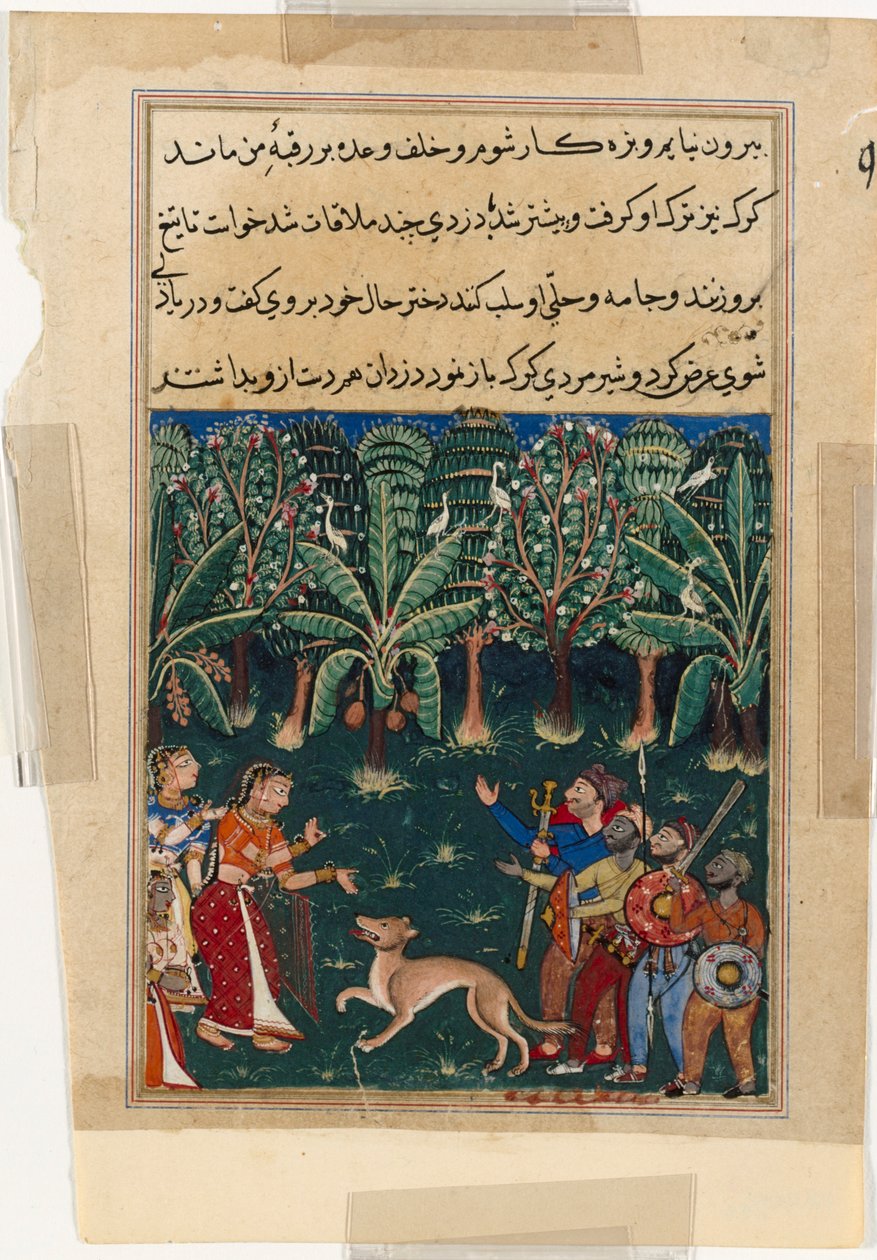 بیرون نیایم و بزه کار شوم و خلف وعده بر رقبهٔ من ماند
کرک نیز ترک او کرفت و پیشتر شد دزدی چند ملاقات شد خواست تا تیغ
برو زنند و جامه و حلّی او سلب کنند دختر حال خود بروی کفت و دریادلی
شوی عرض کرد و شیر مردی کرک باز نمود دزدان هم دست ازو بداشتند
۹